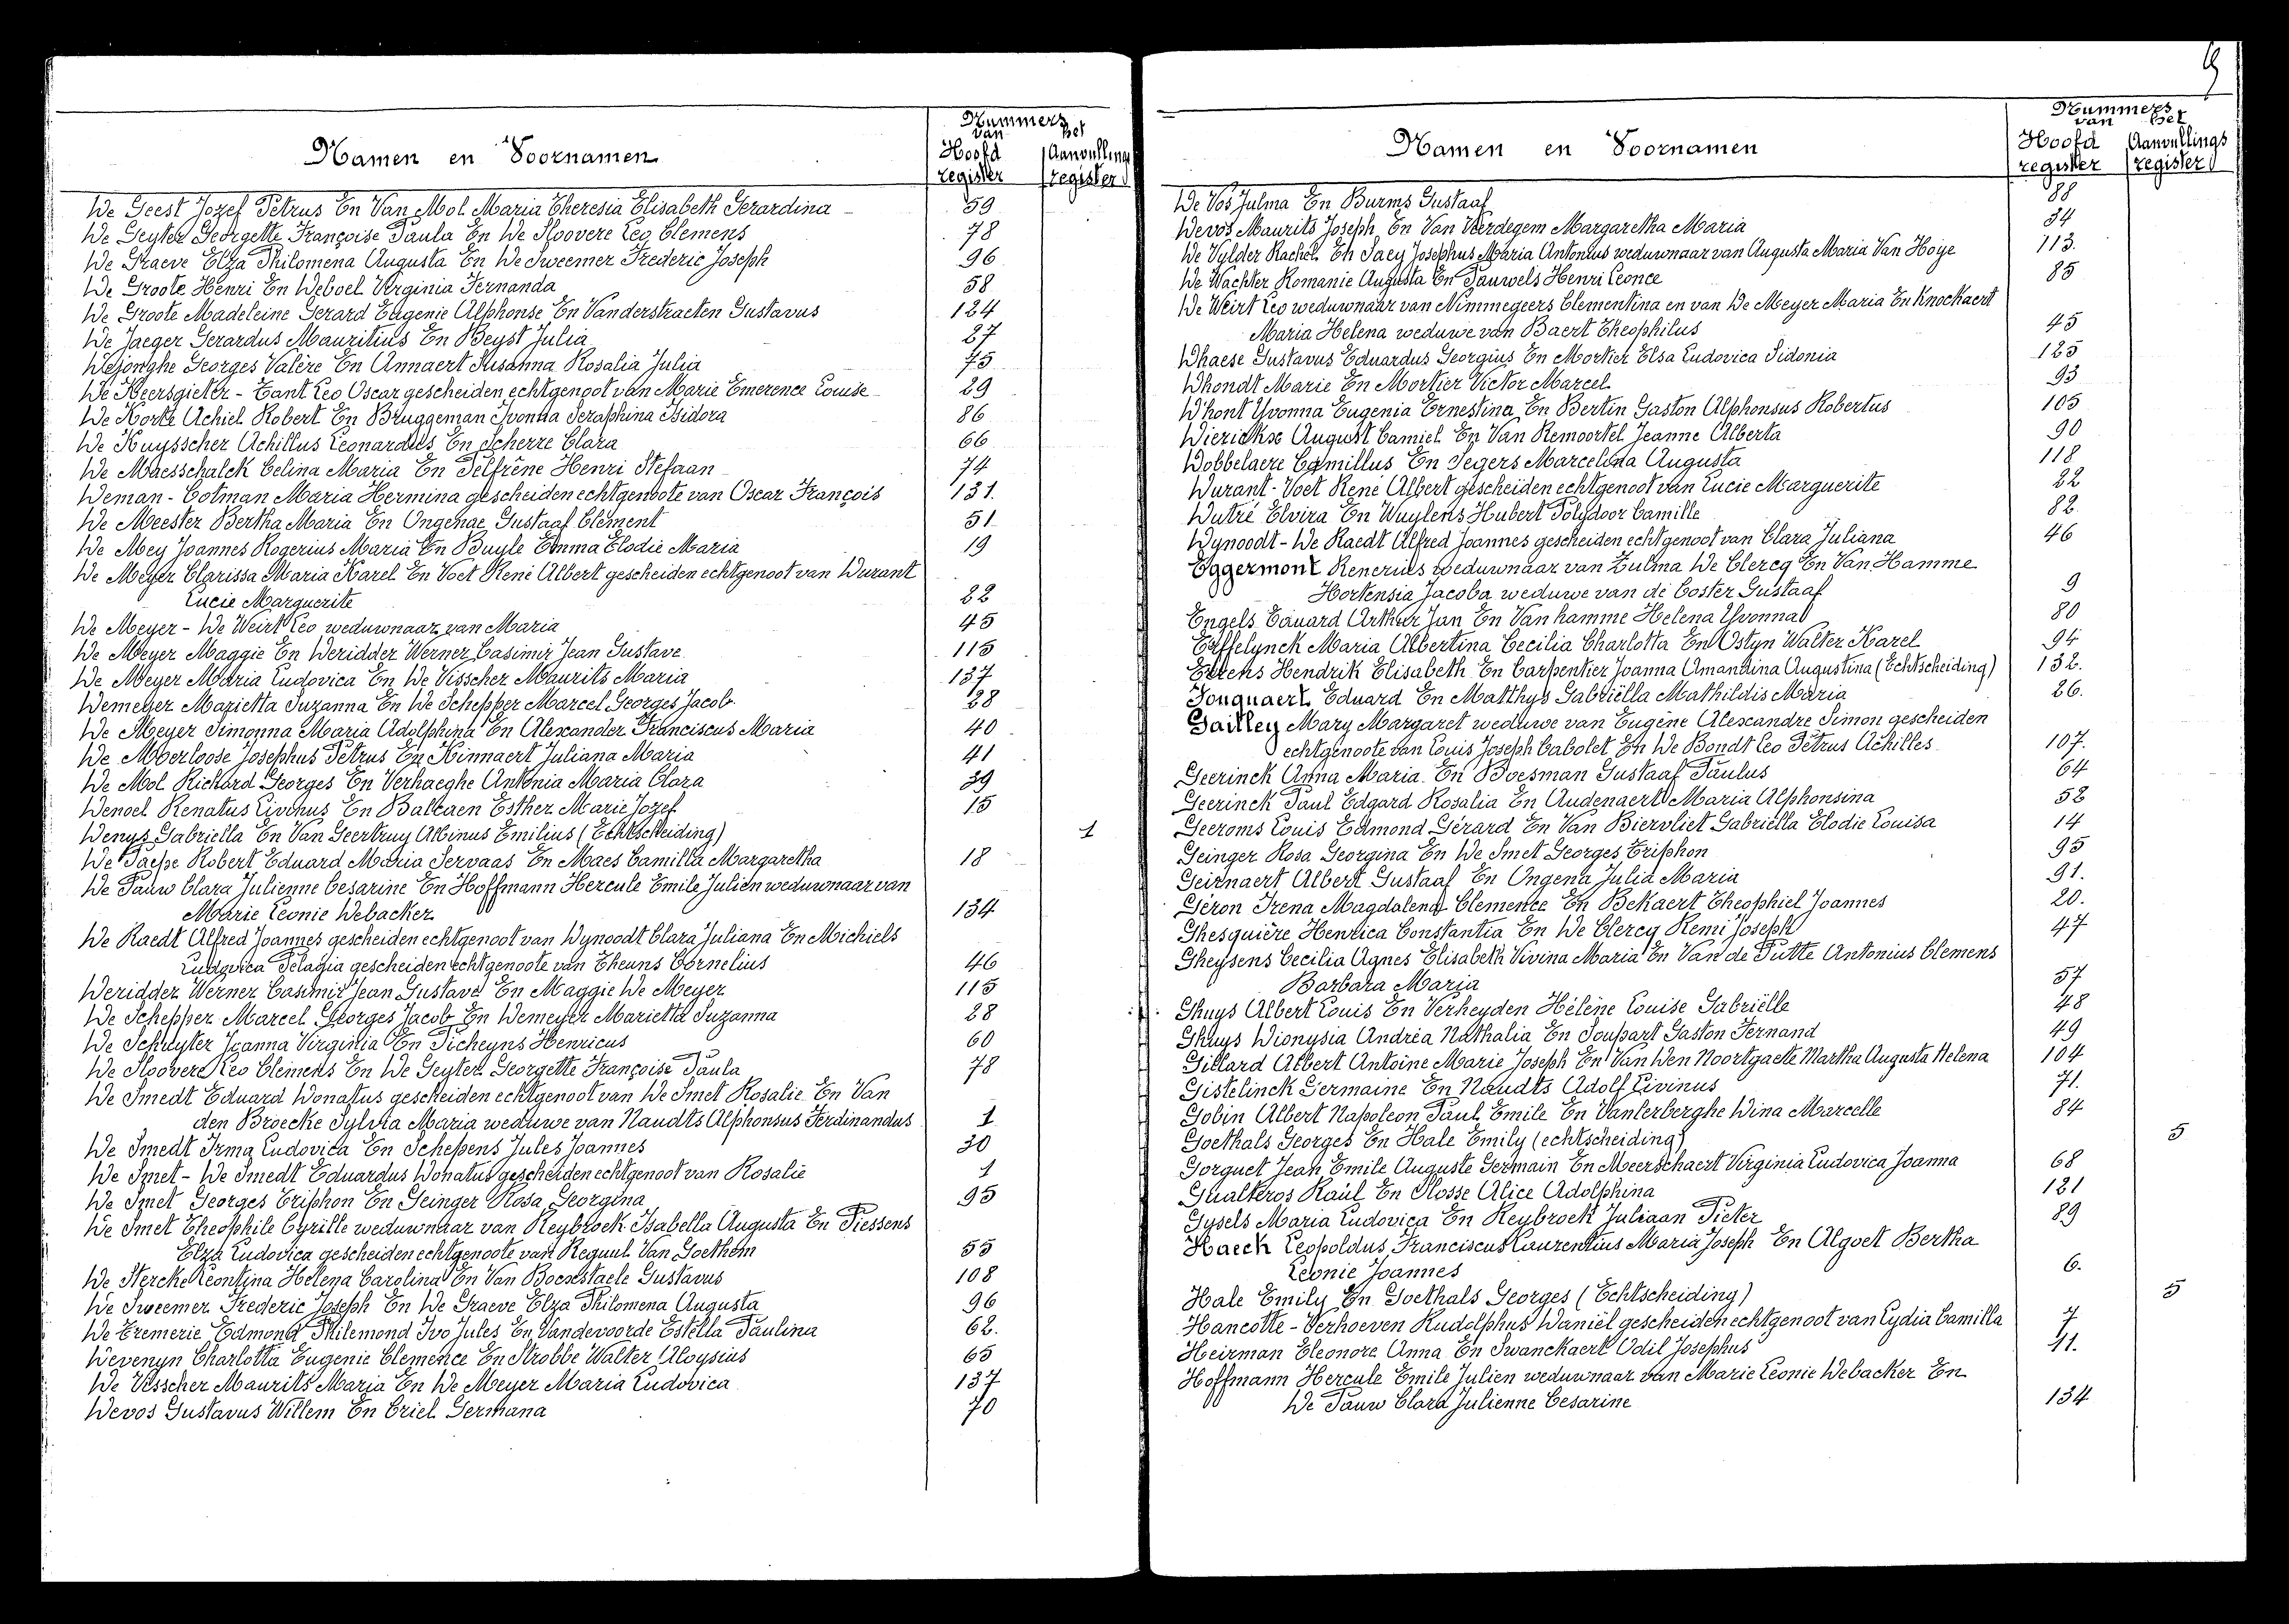 Nummers
van het
Namen en Voornamen
Hoofd register
Aanvullings register
De Geest Jozef Petrus En Van Mol Maria Theresia Elisabeth Gerardina 59
De Geyter Georgette Françoise Paula En De Sloovere Leo Clemens 78
De Graeve Elza Philomena Augusta En De Sweemer Frederic Joseph 96
De Groote Henri En Deboel Virginia Fernanda 58
De Groote Madeleine Gerard Eugenie Alphonse En Vanderstraeten Gustavus 124
De Jaeger Gerardus Mauritius En Beyst Julia 27
Dejonghe Georges Valère En Annaert Susanna Rosalia Julia 75
De Keersgieter - Tant Leo Oscar gescheiden echtgenoot van Marie Emerence Louise 29
De Korte Achiel Robert En Bruggeman Ivonna Seraphina Isidora 86
De Kuysscher Achillus Leonardus En Scherre Clara 66
De Maesschalck Celina Maria En Pelfrêne Henri Stefaan 74
Deman - Cotman Maria Hermina gescheiden echtgenoote van Oscar François 131.
De Meester Bertha Maria En Ongenae Gustaaf Clément 51
De Mey Joannes Rogerius Maria En Buyle Emma Elodie Maria 19
De Meyer Clarissa Maria Karel En Voet René Albert gescheiden echtgenoot van Durant
Lucie Marguerite 22
De Meyer - De Weirt Leo weduwnaar van Maria 45
De Meyer Maggie En Deridder Werner Casimir Jean Gustave 115
De Meyer Maria Ludovica En De Visscher Maurits Maria 137
Demeyer Marietta Suzanna En De Schepper Marcel Georges Jacob 28
De Meyer Simonna Maria Adolphina En Alexander Franciscus Maria 40
De Moerloose Josephus Petrus En Kinnaert Juliana Maria 41
De Mol Richard Georges En Verhaeghe Antonia Maria Clara 39
Denoel Renatus Livinus En Baltaen Esther Marie Jozef 15
Denys Gabriella En Van Geertruy Albinus Emilius (Echtscheiding) 1
De Paepe Robert Eduard Maria Servaas En Maes Camilla Margaretha 18
De Pauw Clara Julienne Cesarine En Hoffmann Hercule Emile Julien weduwnaar van
Marie Leonie Debacker 134
De Raedt Alfred Joannes gescheiden echtgenoot van Dynoodt Clara Juliana En Michiels
Ludovica Pelagia gescheiden echtgenoote van Theuns Cornelius 46
Deridder Werner Casimir Jean Gustave En Maggie De Meyer 115
De Schepper Marcel Georges Jacob En Demeyer Marietta Suzanna 28
De Schuyter Joanna Virginia En Picheyns Henricus 60
De Sloovere Leo Clemens En De Geyter Georgette Françoise Paula 78
De Smedt Eduard Donatus gescheiden echtgenoot van De Smet Rosalie En Van
den Broecke Sylvia Maria weduwe van Naudts Alphonsus Ferdinandus 1
De Smedt Irma Ludovica En Schepens Jules Joannes 30
De Smet - De Smedt Eduardus Donatus gescheiden echtgenoot van Rosalie 1
De Smet Georges Triphon En Geinger Rosa Georgina 95
De Smet Theophile Cyrille weduwnaar van Reybroek Isabella Augusta En Piessens
Elza Ludovica gescheiden echtgenoote van Requul Van Goethem 55
De Stercke Leontina Helena Carolina En Van Bocxstaele Gustavus 108
De Sweemer Frederic Joseph En De Graeve Elza Philomena Augusta 96
De Tremerie Edmond Philemond Ivo Jules En Vandevoorde Estella Paulina 62.
Devenyn Charlotta Eugenie Clemence En Strobbe Walter Aloysius 65
De Visscher Maurits Maria En De Meyer Maria Ludovica 137
Devos Gustavus Willem En Criel Germana 70
Nummers
van het
Namen en Voornamen
Hoofd register
Aanvullings register
De Vos Julma En Burms Gustaaf 88
Devos Maurits Joseph En Van Vierdegem Margaretha Maria 34
De Vylder Rachel En Saey Josephus Maria Antonius weduwnaar van Augusta Maria Van Hoye 113.
De Wachter Romanie Augusta En Pauwels Henri Leonce 85
De Weirt Leo weduwnaar van Nimmegeers Clementina en van De Meyer Maria En Knockaert
Maria Helena weduwe van Baert Theophilus 45
Dhaese Gustavus Eduardus Georgius En Mortier Elsa Ludovica Sidonia 125
Dhondt Marie En Mortier Victor Marcel 93
D'hont Yvonna Eugenia Ernestina En Bertin Gaston Alphonsus Robertus 105
Dierickx August Camiel En Van Remoortel Jeanne Alberta 90
Dobbelaere Camillus En Segers Marcelina Augusta 118
Durant - Voet René Albert gescheiden echtgenoot van Lucie Marguerite 22
Dutré Elvira En Duylens Hubert Polydoor Camille 82
Dynoodt - De Raedt Alfred Joannes gescheiden echtgenoot van Clara Juliana 46
Eggermont Renerius weduwnaar van Zulma De Clercq En Van Hamme
Hortensia Jacoba weduwe van de Coster Gustaaf 9
Engels Eduard Arthur Jan En Vanhamme Helena Yvonna 80
Erffelynck Maria Albertina Cecilia Charlotta En Ostyn Walter Karel 94
Evrens Hendrik Elisabeth En Carpentier Joanna Amandina Augustina (Echtscheiding) 132.
Fonquaert Eduard En Matthys Gabriëlla Mathildis Maria 26.
Gailley Mary Margaret weduwe van Eugène Alexandre Simon gescheiden
echtgenoote van Louis Joseph Cabolet En De Bondt Leo Petrus Achilles 107.
Geerinck Anna Maria En Boesman Gustaaf Paulus 64
Geerinck Paul Edgard Rosalia En Audenaert Maria Alphonsina 52
Geeroms Louis Edmond Gérard En Van Biervliet Gabriëlla Elodie Louisa 14
Geinger Rosa Georgina En De Smet Georges Triphon 95
Geirnaert Albert Gustaaf En Ongena Julia Maria 91.
Géron Irena Magdalena Clemence En Bekaert Theophiel Joannes 20.
Ghesquière Henrica Constantia En De Clercq Remi Joseph 47
Gheysens Cecilia Agnes Elisabeth Vivina Maria En Van de Putte Antonius Clemens
Barbara Maria 57
Ghuys Albert Louis En Verheyden Hélène Louise Gabriëlle 48
Ghuys Dionysia Andréa Nathalia En Soupart Gaston Fernand 49
Gillard Albert Antoine Marie Joseph En Van Den Noortgaete Martha Augusta Helena 104
Gistelinck Germaine En Naudts Adolf Livinus 71.
Gobin Albert Napoleon Paul Emile En Vanlerberghe Dina Marcelle 84
Goethals Georges En Hale Emily (echtscheiding) 5
Gorguet Jean Emile Auguste Germain En Meerschaert Virginia Ludovica Joanna 68
Gualteros Raúl En Slosse Alice Adolphina 121
Gysels Maria Ludovica En Reybroek Juliaan Pieter 89
Haeck Leopoldus Franciscus Laurentius Maria Joseph En Algoet Bertha
Leonie Joannes 6.
Hale Emily En Goethals Georges (Echtscheiding) 5
Hancotte - Verhoeven Rudolphus Daniël gescheiden echtgenoot van Lydia Camilla 7
Heirman Eleonore Anna En Swanckaert Odil Josephus 11.
Hoffmann Hercule Emile Julien weduwnaar van Marie Leonie Debacker En
De Pauw Clara Julienne Cesarine 134